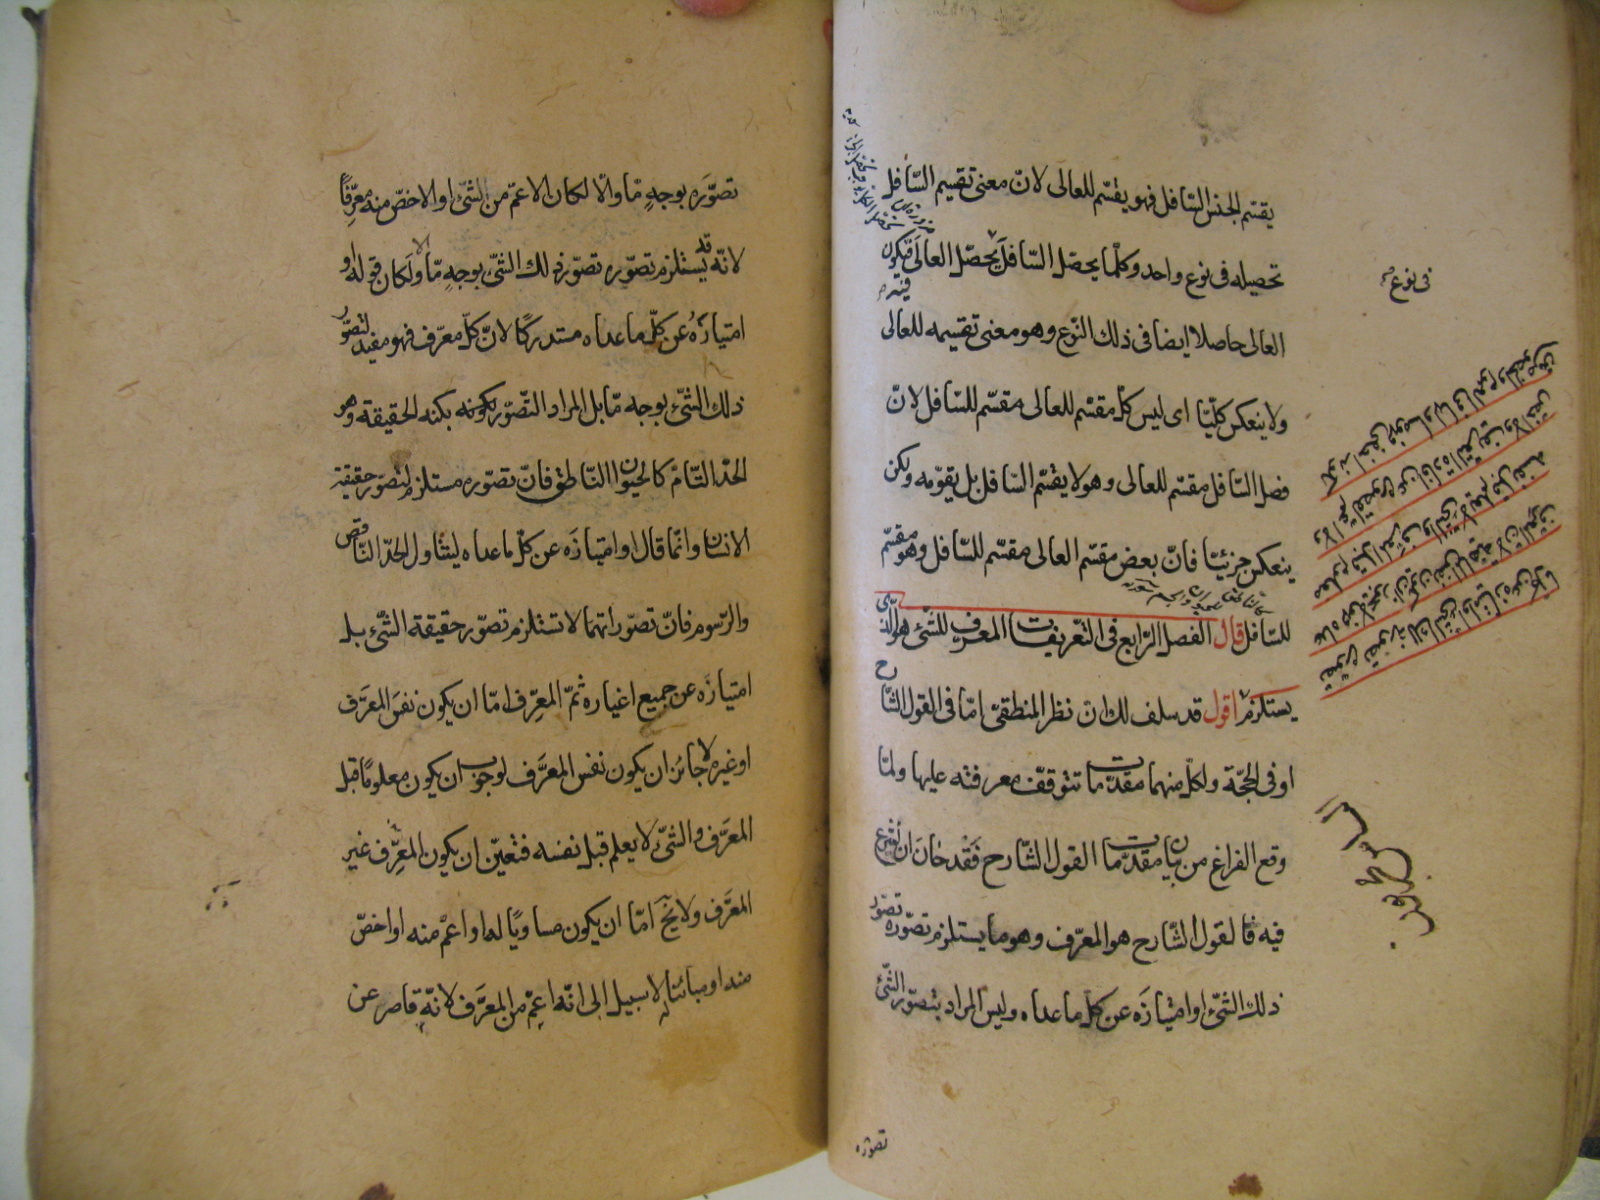 يقسّم الجنس السّافل فهو يقسّم للعالى لانّ معنى تقسيم السّافل
تحصيله فى نوع واحد وكلّما يحصّل السّافل يحصّل العالى فيكون
العالى حاصلا ايضا فى ذلك النّوع وهو معنى تقسيمه للعالى
ولا ينعكس كلّيّا اى ليس كلّ مقسّم للعالى مقسّم للسّافل لانّ
فصل السّافل مقسّم للعالى وهو لا يقسّم السّافل بل يقوّمه ولكن
ينعكس جزئيّا فانّ بعض مقسّم العالى مقسّم للسّافل وهو مقسّم
للسّافل قال الفصل الرّابع فى التّعريفات المعرف للشّئ هو الّذى
يستلزم اقول قد سلف لك ان نظر المنطقىّ امّا فى القول الشّارح
او فى الحجّة ولكلّ منهما مقدّمات تتوقّف معرفته عليها ولمّا
وقع الفراغ من بيان مقدّمات القول الشّارح فقد حان ان نشرع
فيه فالقول الشّارح هو المعرّف وهو ما يستلزم تصوّره تصوّر
ذلك الشّئ او امتيازه عن كلّ ما عداه وليس المراد بتصوّر الشّئ
تصوّره
فى نوع
تصوّره بوجهٍ مّا والّا لكان الاعمّ من الشّئ او الاخصّ منه معرّفًا
لانّه قد يستلزم تصوّره تصوّر ذلك الشّئ بوجهٍ مّا ولكان قوله او
امتيازه عن كلّ ما عداه مستدركًا لانّ كلّ معرّف فهو مفيد لتصوّر
ذلك الشّئ بوجه مّا بل المراد التّصوّر بكونه بكنه الحقيقة وهو
الحدّ التّامّ كالحيوان النّاطق فانّ تصوّره مستلزم لتصوّر حقيقة
الانسان وانّما قال او امتيازه عن كلّ ما عداه ليتناول الحدّ النّاقص
والرّسوم فانّ تصوّراتهما لا تستلزم تصوّر حقيقة الشّئ بل
امتيازه عن جميع اغياره ثمّ المعرّف امّا ان يكون نفس المعرَّف
او غيره لا جائز ان يكون نفس المعرَّف لوجوب ان يكون معلومًا قبل
المعرَّف والشّئ لا يعلم قبل نفسه فتعيّن ان يكون المعرِّف غير
المعرَّف ولا يخ امّا ان يكون مساويًا له او اعمّ منه او اخصّ
منه او مبائنا له لا سبيل الى انّه اعمّ من المعرَّف لانّه قاصر عن